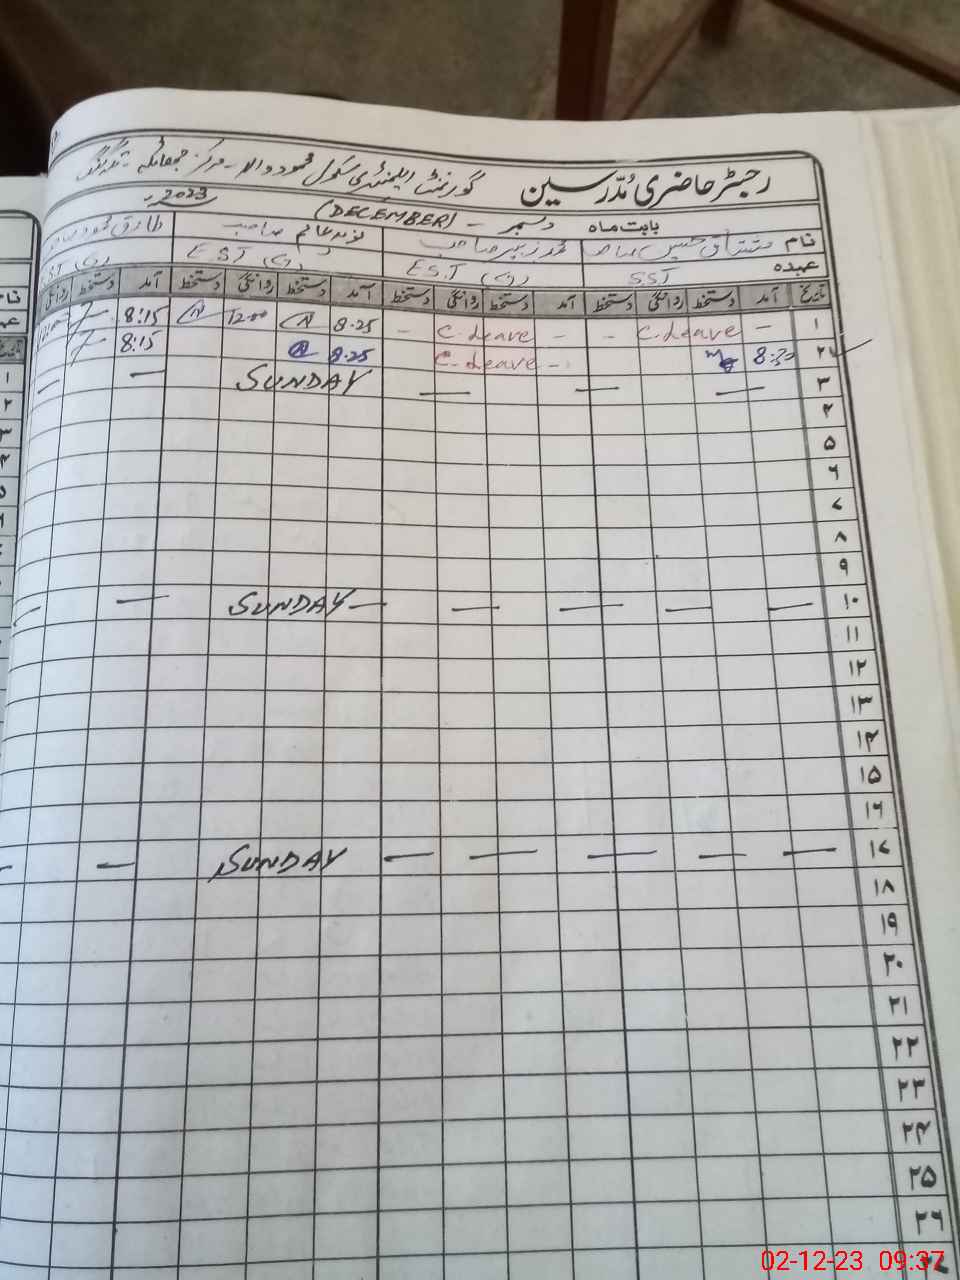 رجسٹر حاضری مدرسین گورنمنٹ ایلیمنٹری سکول محمود والا - مرکز جھاٹلہ - تلہ گنگ
بابت ماہ دسمبر - (DECEMBER) 2023ء
نام مشتاق حسین صاحب محمد زبیر صاحب نوید عالم صاحب طارق محمود صاحب
عہدہ SST EST EST
تاریخ آمد دستخط روانگی دستخط آمد دستخط روانگی دستخط آمد دستخط روانگی دستخط آمد دستخط روانگی
۱ - C.Leave - - C.Leave - 8.25 12.00 8:15
۲ 8:30 - C.Leave 8.25 8:15
۳ — — — SUNDAY — —
۴
۵
۶
۷
۸
۹
۱۰ — — — — — SUNDAY — —
۱۱
۱۲
۱۳
۱۴
۱۵
۱۶
۱۷ — — — — — SUNDAY — —
۱۸
۱۹
۲۰
۲۱
۲۲
۲۳
۲۴
۲۵
۲۶
۲۷
02-12-23 09:37